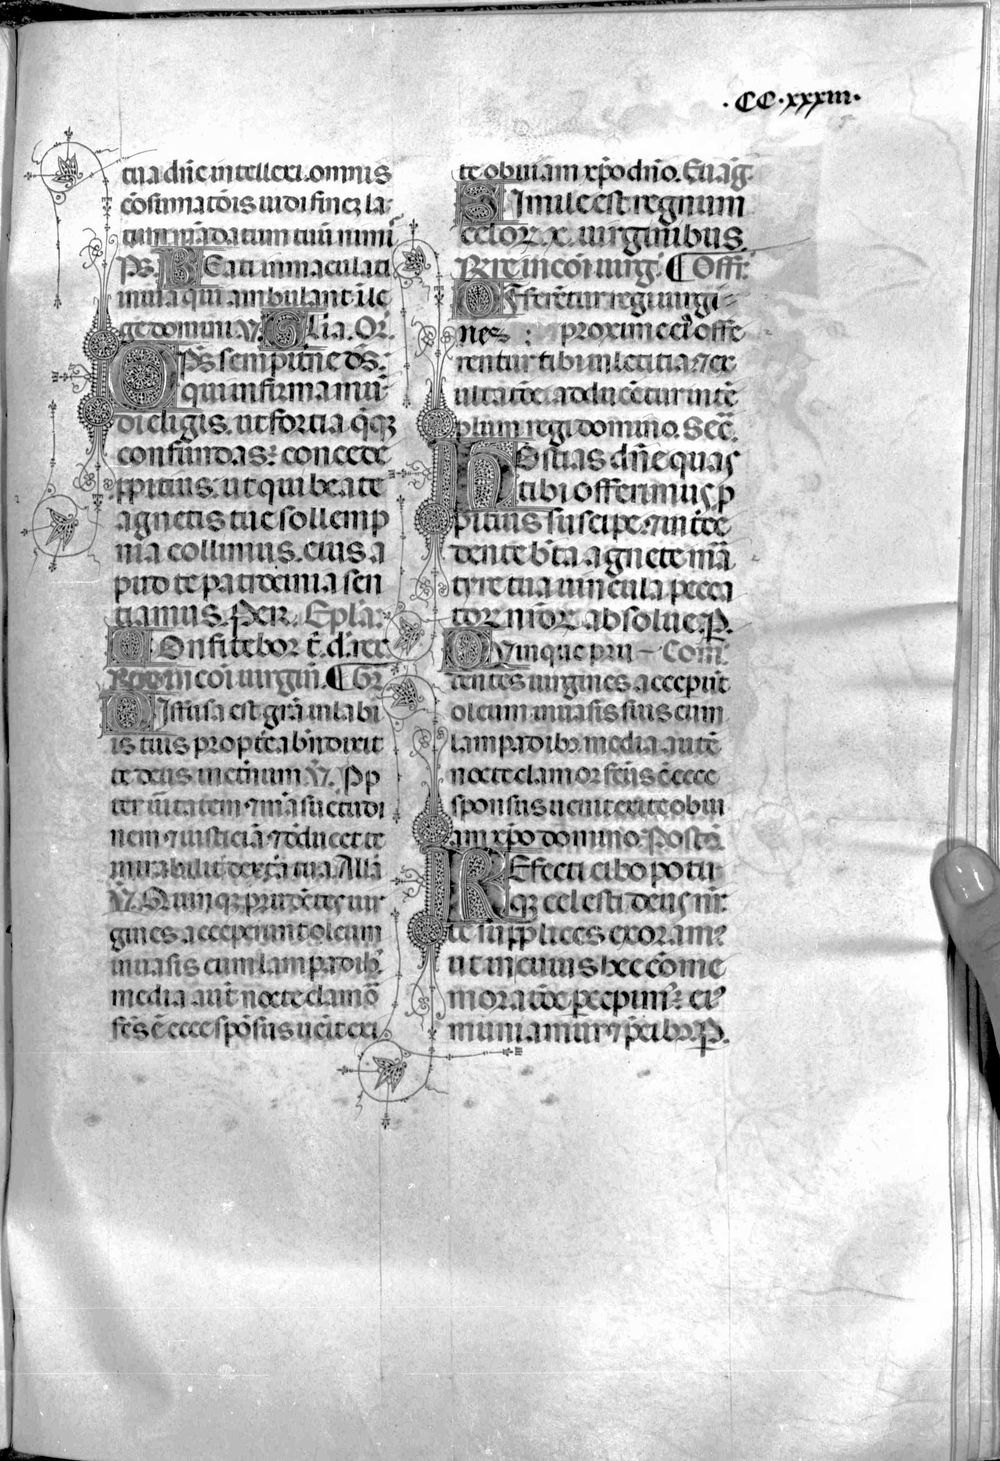 ·CC·xxxiii·
tua dñe intellexi. omnis
cõsumatõis uidi finez la
tum mãdatum tuũ nimi
Ps. BEati inmaculati
in uia qui ambulant ĩ le
ge domini. V. Glia. Or.
OPs sempitne ds.
qui infirma mũ
di eligis. ut fortia q̃qz
confundas: concede
ppitius. ut qui beate
agnetis tue sollemp
nia colimus. eius a
pud te patrocinia sen
tiamus. Per. Epla.
COnfitebor t̃. d. rex
Rqre in coi uirgin. ¶ Gr.
DIffusa est grã in labi
is tuis propt̃ea bñdixit
te deus in et̃num V. Pp
ter ũitatem ⁊ mãsuetudi
nem ⁊ iusticiã ⁊ deducet te
mirabilit̃ dextã tua Alla
V. Quinqz prudẽtes uir
gines acceperunt oleum
in uasis cum lampadibz.
media aut̃ nocte clamõ
fc̃s ẽ ecce spõsus uẽit exi
te obuiam xp̃o dño. Euãg.
SImile est regnum
celoꝝ x. uirginibus.
Rqre in coi uirg. ¶ Offr.
OFferẽtur regi uirgi-
nes : proxime eiꝰ offe
rentur tibi in leticia ⁊ ex
ultatõe adducẽtur in tẽ
plum regi domino. Sec̃.
HOstias dñe quas
tibi offerimus p
pitius suscipe. ⁊ int̃ce
dente bt̃a agnete mã
tyre tua uincula pecca
toꝝ nr̃oꝝ absolue. P.
QVinque pru- Com̃.
dentes uirgines acceperũt
oleum in uasis suis cum
lampadibz media aut̃e
nocte clamor fc̃us ẽ ecce
sponsus uenit exite obui
am xp̃o domino. Postc̃.
REfecti cibo potu
qz celesti deus nr̃.
te supplices exoramꝰ
ut in cuius hec cõme
moratõe pcepimꝰ: eiꝰ
muniamur ⁊ p̃cibz. P.